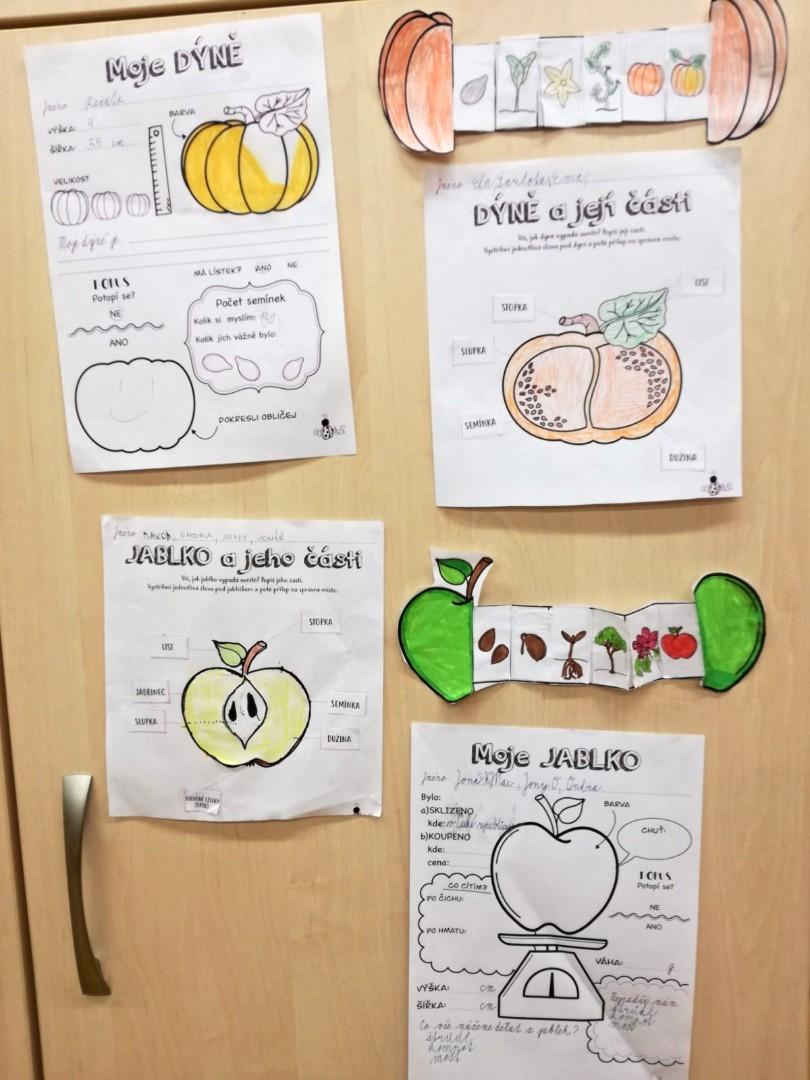 Moje DÝNĚ
Jméno Renata
VÝŠKA: 4
ŠÍŘKA: 55 cm
BARVA
VELIKOST
Moje dýně je
POKUS
Potopí se?
NE
ANO
MÁ LÍSTEK? ANO NE
Počet semínek
Kolik si myslím:
Kolik jich vážně bylo:
DOKRESLI OBLIČEJ
Jméno Ela,
DÝNĚ a její části
Víš, jak dýně vypadá uvnitř? Popiš její části.
Vystřihni jednotlivá slova pod dýní a poté přilep na správné místo.
LIST
STOPKA
SLUPKA
SEMÍNKA
DUŽINA
Jméno ONDRA, JONY, JONÁŠ
JABLKO a jeho části
Víš, jak jablko vypadá uvnitř? Popiš jeho části.
Vystřihni jednotlivá slova pod jablíčkem a poté přilep na správné místo.
STOPKA
LIST
JADŘINEC
SEMÍNKA
SLUPKA
DUŽINA
Moje JABLKO
Jméno Jonáš, Max, Jony O, Ondra
Bylo:
a)SKLIZENO
kde:
b)KOUPENO
kde:
cena:
BARVA
CHUŤ:
CO CÍTÍM?
PO ČICHU:
PO HMATU:
POKUS
Potopí se?
NE
ANO
VÁHA: g
VÝŠKA: cm
ŠÍŘKA: cm
Co vše můžeme dělat z jablek?
štrúdl
kompot
mošt
štrúdl
kompot
mošt